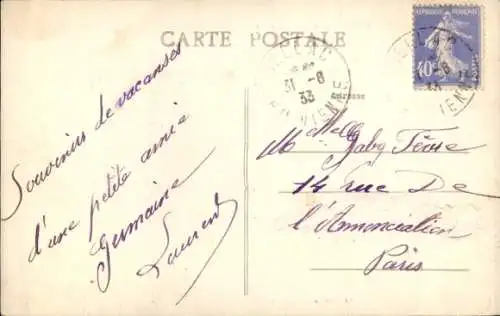 CARTE POSTALE
BELLAC
31 -8
33
Hte VIENNE
RÉPUBLIQUE FRANÇAISE
40c
Adresse
Souvenirs de vacances
d'une petite amie
Germaine
Laurent
Melle Gaby
14 rue De
l'Annonciation
Paris